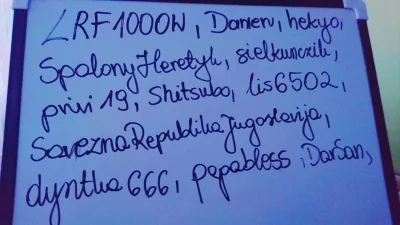 LRF1000W, Damen, hekyo,
SpalonyHeretyk, sielkunczik,
privi 19, Shitsubo, lis6502,
SaveznaRepublikaJugoslavija,
dyntka666, papabless, DarSan,